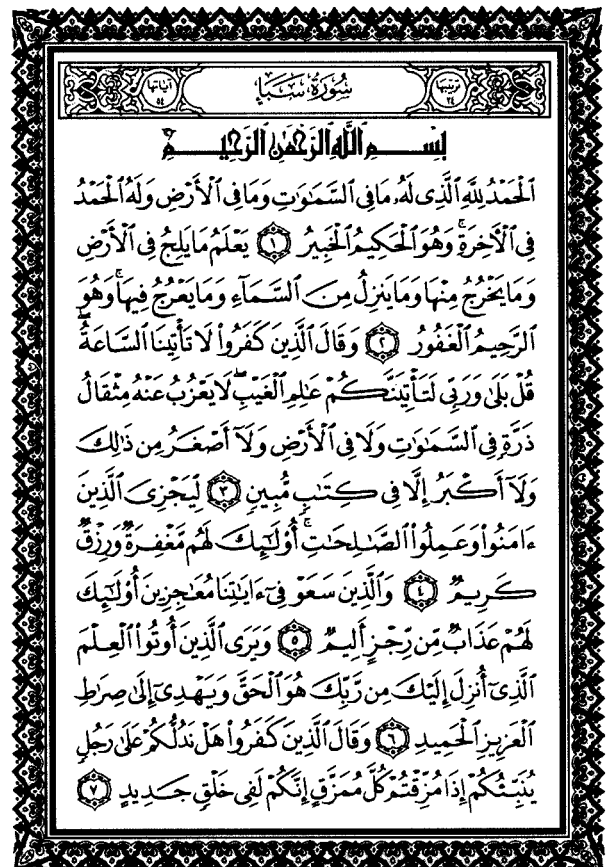 ترتيبها ٣٤ سُورَةُ سَبَإٍ آياتها ٥٤
بِسْمِ ٱللَّهِ ٱلرَّحْمَٰنِ ٱلرَّحِيمِ
ٱلْحَمْدُ لِلَّهِ ٱلَّذِى لَهُۥ مَا فِى ٱلسَّمَٰوَٰتِ وَمَا فِى ٱلْأَرْضِ وَلَهُ ٱلْحَمْدُ
فِى ٱلْأَخِرَةِ ۚ وَهُوَ ٱلْحَكِيمُ ٱلْخَبِيرُ ١ يَعْلَمُ مَا يَلِجُ فِى ٱلْأَرْضِ
وَمَا يَخْرُجُ مِنْهَا وَمَا يَنزِلُ مِنَ ٱلسَّمَآءِ وَمَا يَعْرُجُ فِيهَا ۚ وَهُوَ
ٱلرَّحِيمُ ٱلْغَفُورُ ٢ وَقَالَ ٱلَّذِينَ كَفَرُوا۟ لَا تَأْتِينَا ٱلسَّاعَةُ ۖ
قُلْ بَلَىٰ وَرَبِّى لَتَأْتِيَنَّكُمْ عَٰلِمِ ٱلْغَيْبِ ۖ لَا يَعْزُبُ عَنْهُ مِثْقَالُ
ذَرَّةٍ فِى ٱلسَّمَٰوَٰتِ وَلَا فِى ٱلْأَرْضِ وَلَآ أَصْغَرُ مِن ذَٰلِكَ
وَلَآ أَكْبَرُ إِلَّا فِى كِتَٰبٍ مُّبِينٍ ٣ لِّيَجْزِىَ ٱلَّذِينَ
ءَامَنُوا۟ وَعَمِلُوا۟ ٱلصَّٰلِحَٰتِ ۚ أُو۟لَٰٓئِكَ لَهُم مَّغْفِرَةٌ وَرِزْقٌ
كَرِيمٌ ٤ وَٱلَّذِينَ سَعَوْ فِىٓ ءَايَٰتِنَا مُعَٰجِزِينَ أُو۟لَٰٓئِكَ
لَهُمْ عَذَابٌ مِّن رِّجْزٍ أَلِيمٌ ٥ وَيَرَى ٱلَّذِينَ أُوتُوا۟ ٱلْعِلْمَ
ٱلَّذِىٓ أُنزِلَ إِلَيْكَ مِن رَّبِّكَ هُوَ ٱلْحَقَّ وَيَهْدِىٓ إِلَىٰ صِرَٰطِ
ٱلْعَزِيزِ ٱلْحَمِيدِ ٦ وَقَالَ ٱلَّذِينَ كَفَرُوا۟ هَلْ نَدُلُّكُمْ عَلَىٰ رَجُلٍ
يُنَبِّئُكُمْ إِذَا مُزِّقْتُمْ كُلَّ مُمَزَّقٍ إِنَّكُمْ لَفِى خَلْقٍ جَدِيدٍ ٧